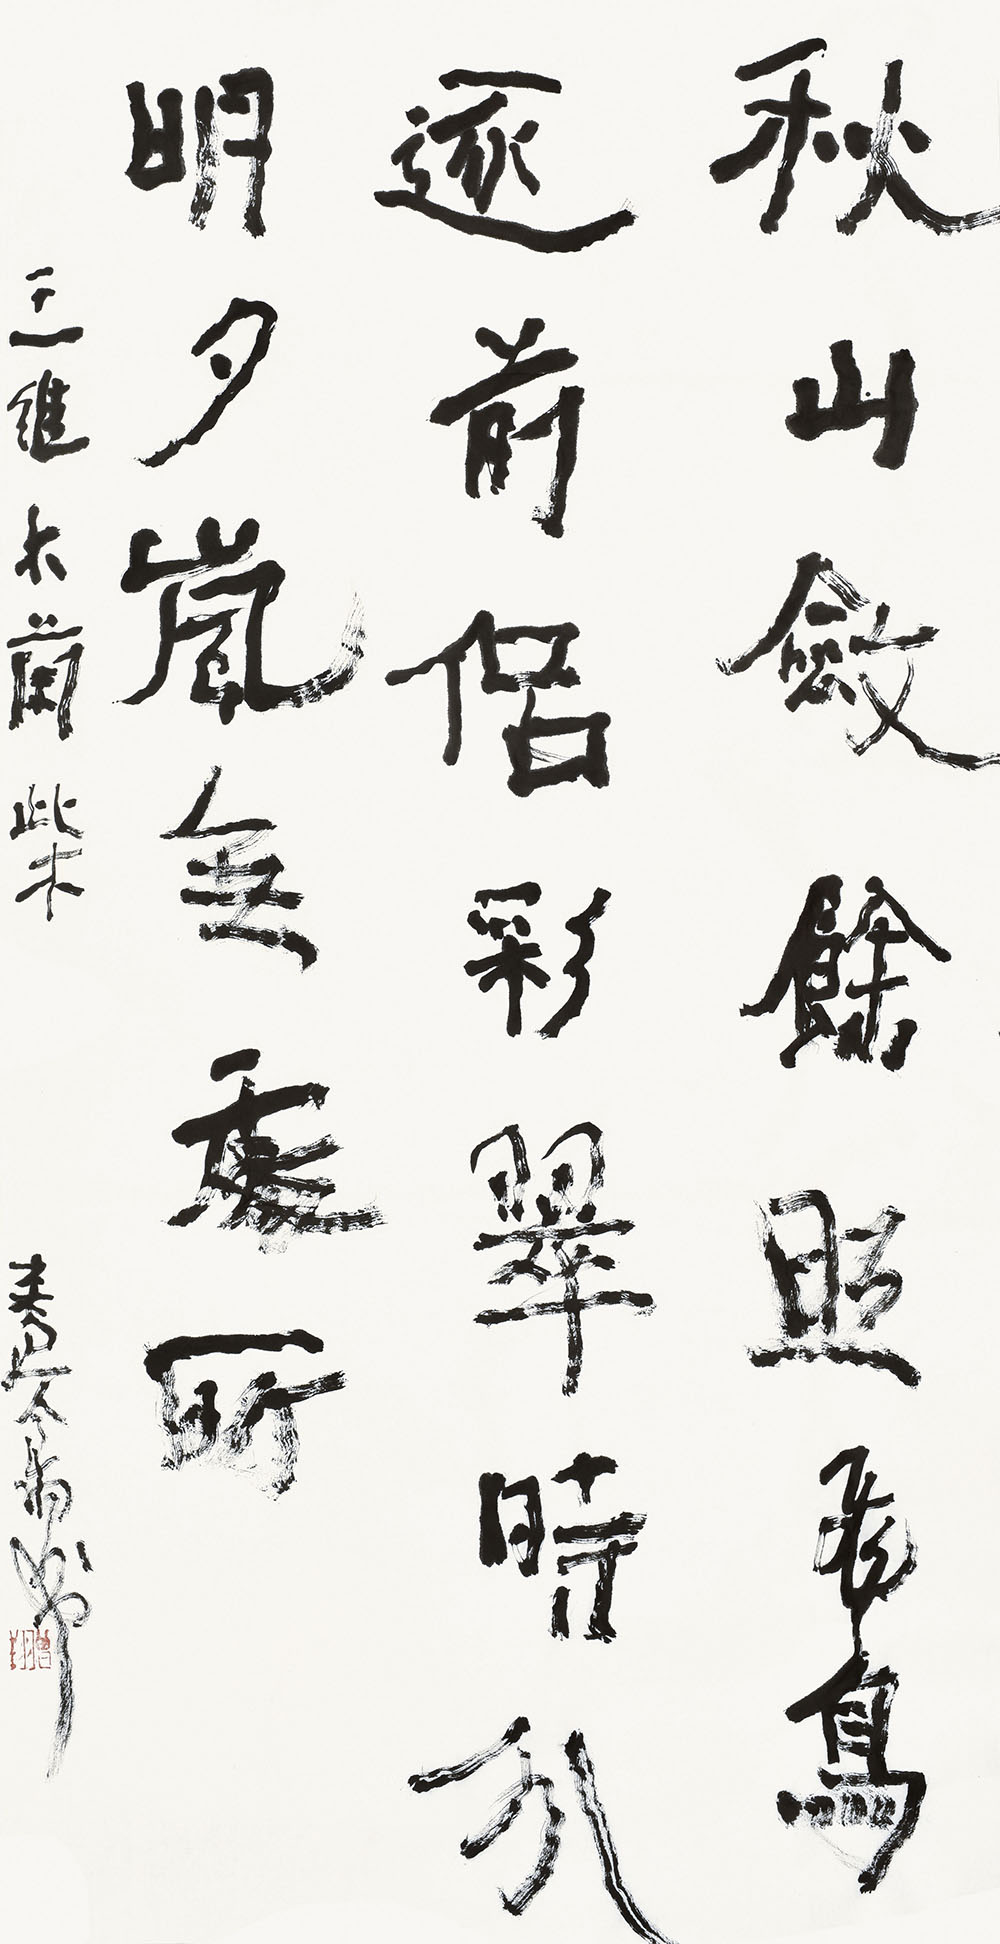 秋山斂餘照飛鳥
逐前侶彩翠時分
明夕嵐無處所
王維木蘭柴
曾翔